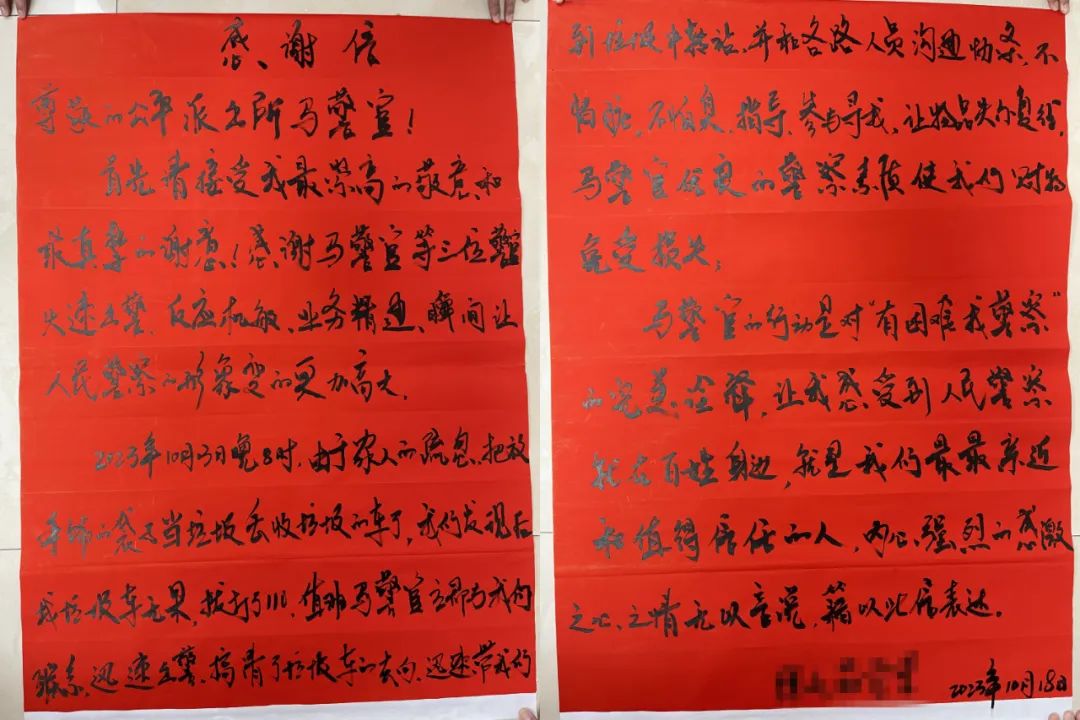 感谢信
尊敬的公平派出所马警官！
首先请接受我最崇高的敬意和
最真挚的谢意！感谢马警官等三位警官
火速出警、反应机敏、业务精通、瞬间让
人民警察的形象变的更加高大。
2023年10月3日晚8时，由于家人的疏忽，把放
的袋子当垃圾丢收垃圾的车了，我们发现后
找垃圾车无果，拨打了110，值班马警官立即与我们
联系，迅速出警，搞清了垃圾车的去向，迅速带我们
到垃圾中转站，并和各路人员沟通协条，不
怕脏，不怕臭，指导、参与寻找，让物品失而复得，
马警官优良的警察素质使我们财物
免受损失；
马警官的行动是对“有困难找警察”
的完美诠释，让我感受到人民警察
就在百姓身边，就是我们最最亲近
和值得信任的人，内心强烈的感激
之心、之情无以言说，籍以此信表达。
2023年10月18日